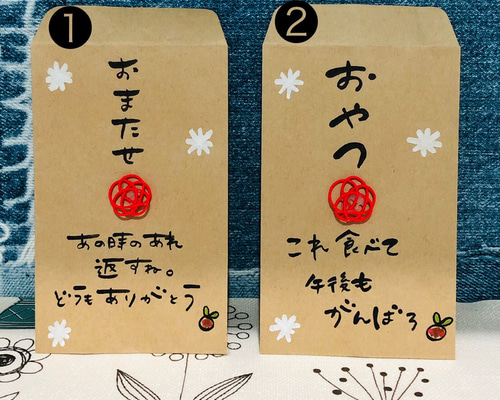 1
おまたせ
あの時のあれ
返すね。
どうもありがとう
2
おやつ
これ食べて
午後も
がんばろ